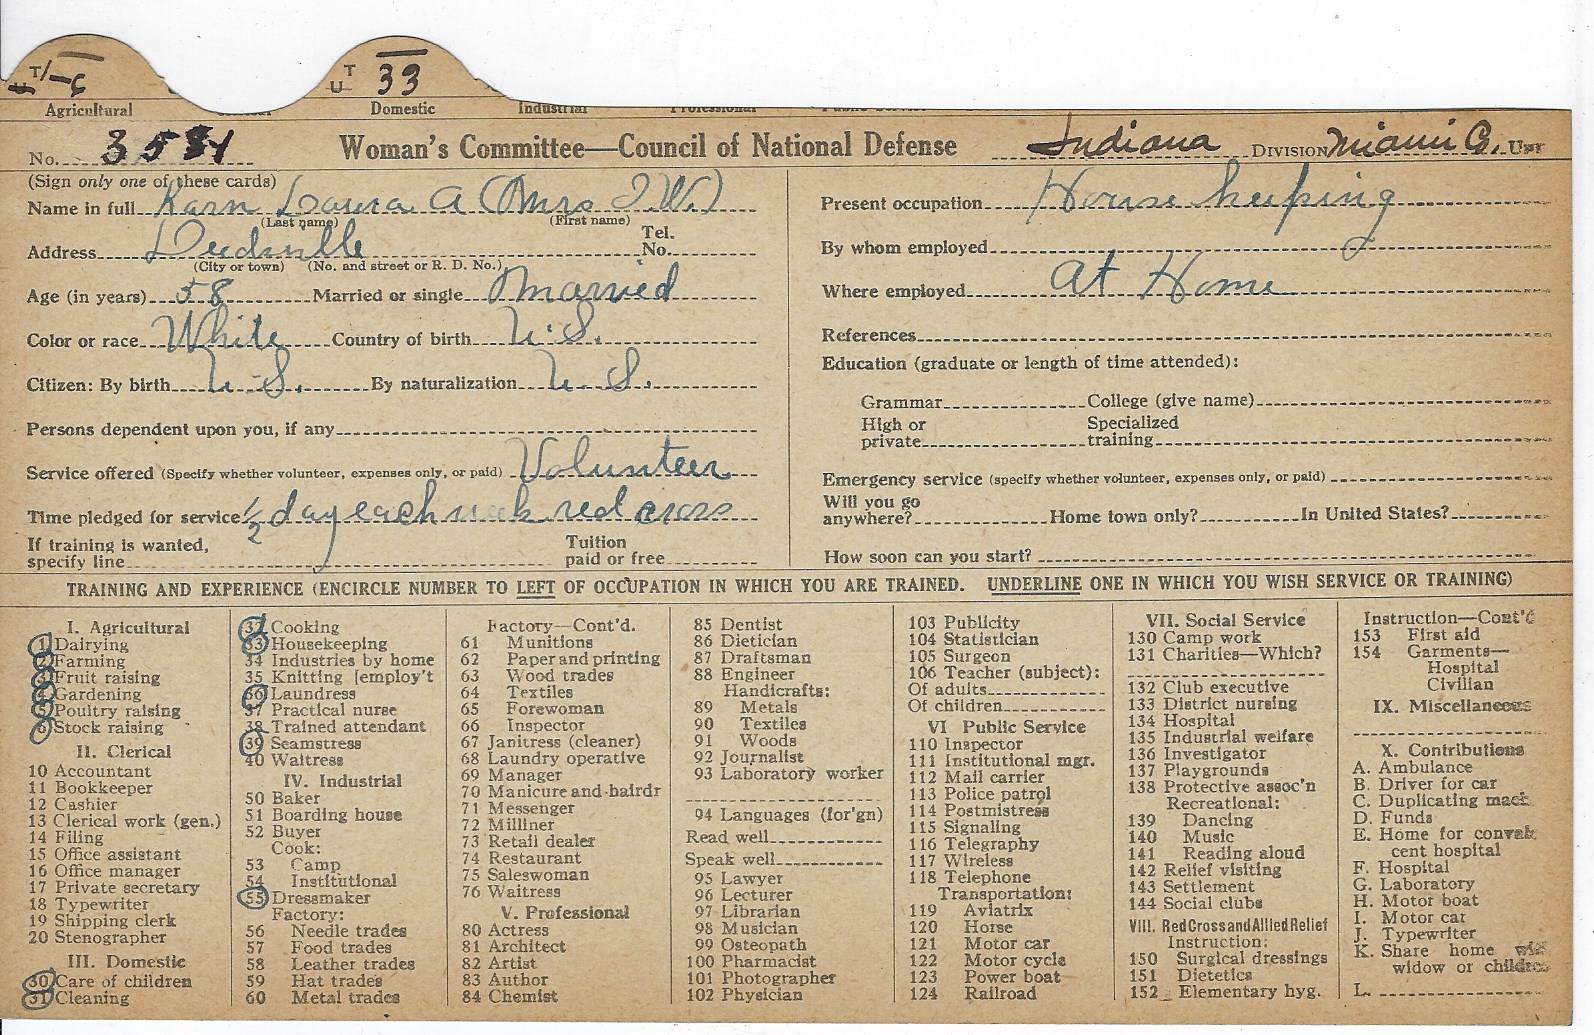 T
U 1-6
T
U 33
Agricultural Domestic Industrial Professional
No. 3531 Woman's Committee—Council of National Defense Indiana DIVISION Miami Co. UNIT
(Sign only one of these cards)
Name in full Karn Laura A (Mrs J.W.)
(Last name) (First name)
Address Deedsville Tel. No.
(City or town) (No. and street or R. D. No.)
Age (in years) 58 Married or single Married
Color or race White Country of birth U.S.
Citizen: By birth U.S. By naturalization U.S.
Persons dependent upon you, if any
Service offered (Specify whether volunteer, expenses only, or paid) Volunteer
Time pledged for service ½ day each week red cross
If training is wanted, specify line Tuition paid or free
Present occupation House keeping
By whom employed
Where employed At Home
References
Education (graduate or length of time attended):
Grammar College (give name)
High or private Specialized training
Emergency service (specify whether volunteer, expenses only, or paid)
Will you go anywhere? Home town only? In United States?
How soon can you start?
TRAINING AND EXPERIENCE (ENCIRCLE NUMBER TO LEFT OF OCCUPATION IN WHICH YOU ARE TRAINED. UNDERLINE ONE IN WHICH YOU WISH SERVICE OR TRAINING)
I. Agricultural
1 Dairying
2 Farming
3 Fruit raising
4 Gardening
5 Poultry raising
6 Stock raising
II. Clerical
10 Accountant
11 Bookkeeper
12 Cashier
13 Clerical work (gen.)
14 Filing
15 Office assistant
16 Office manager
17 Private secretary
18 Typewriter
19 Shipping clerk
20 Stenographer
III. Domestic
30 Care of children
31 Cleaning
32 Cooking
33 Housekeeping
34 Industries by home
35 Knitting [employ't
36 Laundress
37 Practical nurse
38 Trained attendant
39 Seamstress
40 Waitress
IV. Industrial
50 Baker
51 Boarding house
52 Buyer
Cook:
53 Camp
54 Institutional
55 Dressmaker
Factory:
56 Needle trades
57 Food trades
58 Leather trades
59 Hat trades
60 Metal trades
Factory—Cont'd.
61 Munitions
62 Paper and printing
63 Wood trades
64 Textiles
65 Forewoman
66 Inspector
67 Janitress (cleaner)
68 Laundry operative
69 Manager
70 Manicure and hairdr
71 Messenger
72 Milliner
73 Retail dealer
74 Restaurant
75 Saleswoman
76 Waitress
V. Professional
80 Actress
81 Architect
82 Artist
83 Author
84 Chemist
85 Dentist
86 Dietician
87 Draftsman
88 Engineer
Handicrafts:
89 Metals
90 Textiles
91 Woods
92 Journalist
93 Laboratory worker
94 Languages (for'gn)
Read well
Speak well
95 Lawyer
96 Lecturer
97 Librarian
98 Musician
99 Osteopath
100 Pharmacist
101 Photographer
102 Physician
103 Publicity
104 Statistician
105 Surgeon
106 Teacher (subject):
Of adults
Of children
VI Public Service
110 Inspector
111 Institutional mgr.
112 Mail carrier
113 Police patrol
114 Postmistress
115 Signaling
116 Telegraphy
117 Wireless
118 Telephone
Transportation:
119 Aviatrix
120 Horse
121 Motor car
122 Motor cycle
123 Power boat
124 Railroad
VII. Social Service
130 Camp work
131 Charities—Which?
132 Club executive
133 District nursing
134 Hospital
135 Industrial welfare
136 Investigator
137 Playgrounds
138 Protective assoc'n
Recreational:
139 Dancing
140 Music
141 Reading aloud
142 Relief visiting
143 Settlement
144 Social clubs
VIII. Red Cross and Allied Relief
Instruction:
150 Surgical dressings
151 Dietetics
152 Elementary hyg.
Instruction—Cont'd
153 First aid
154 Garments—
Hospital
Civilian
IX. Miscellaneous
X. Contributions
A. Ambulance
B. Driver for car
C. Duplicating mach.
D. Funds
E. Home for convales
cent hospital
F. Hospital
G. Laboratory
H. Motor boat
I. Motor car
J. Typewriter
K. Share home with
widow or children
L.